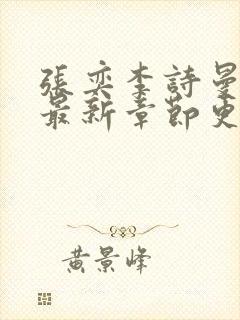 張奕李詩曼
最新章節更
黃景峰